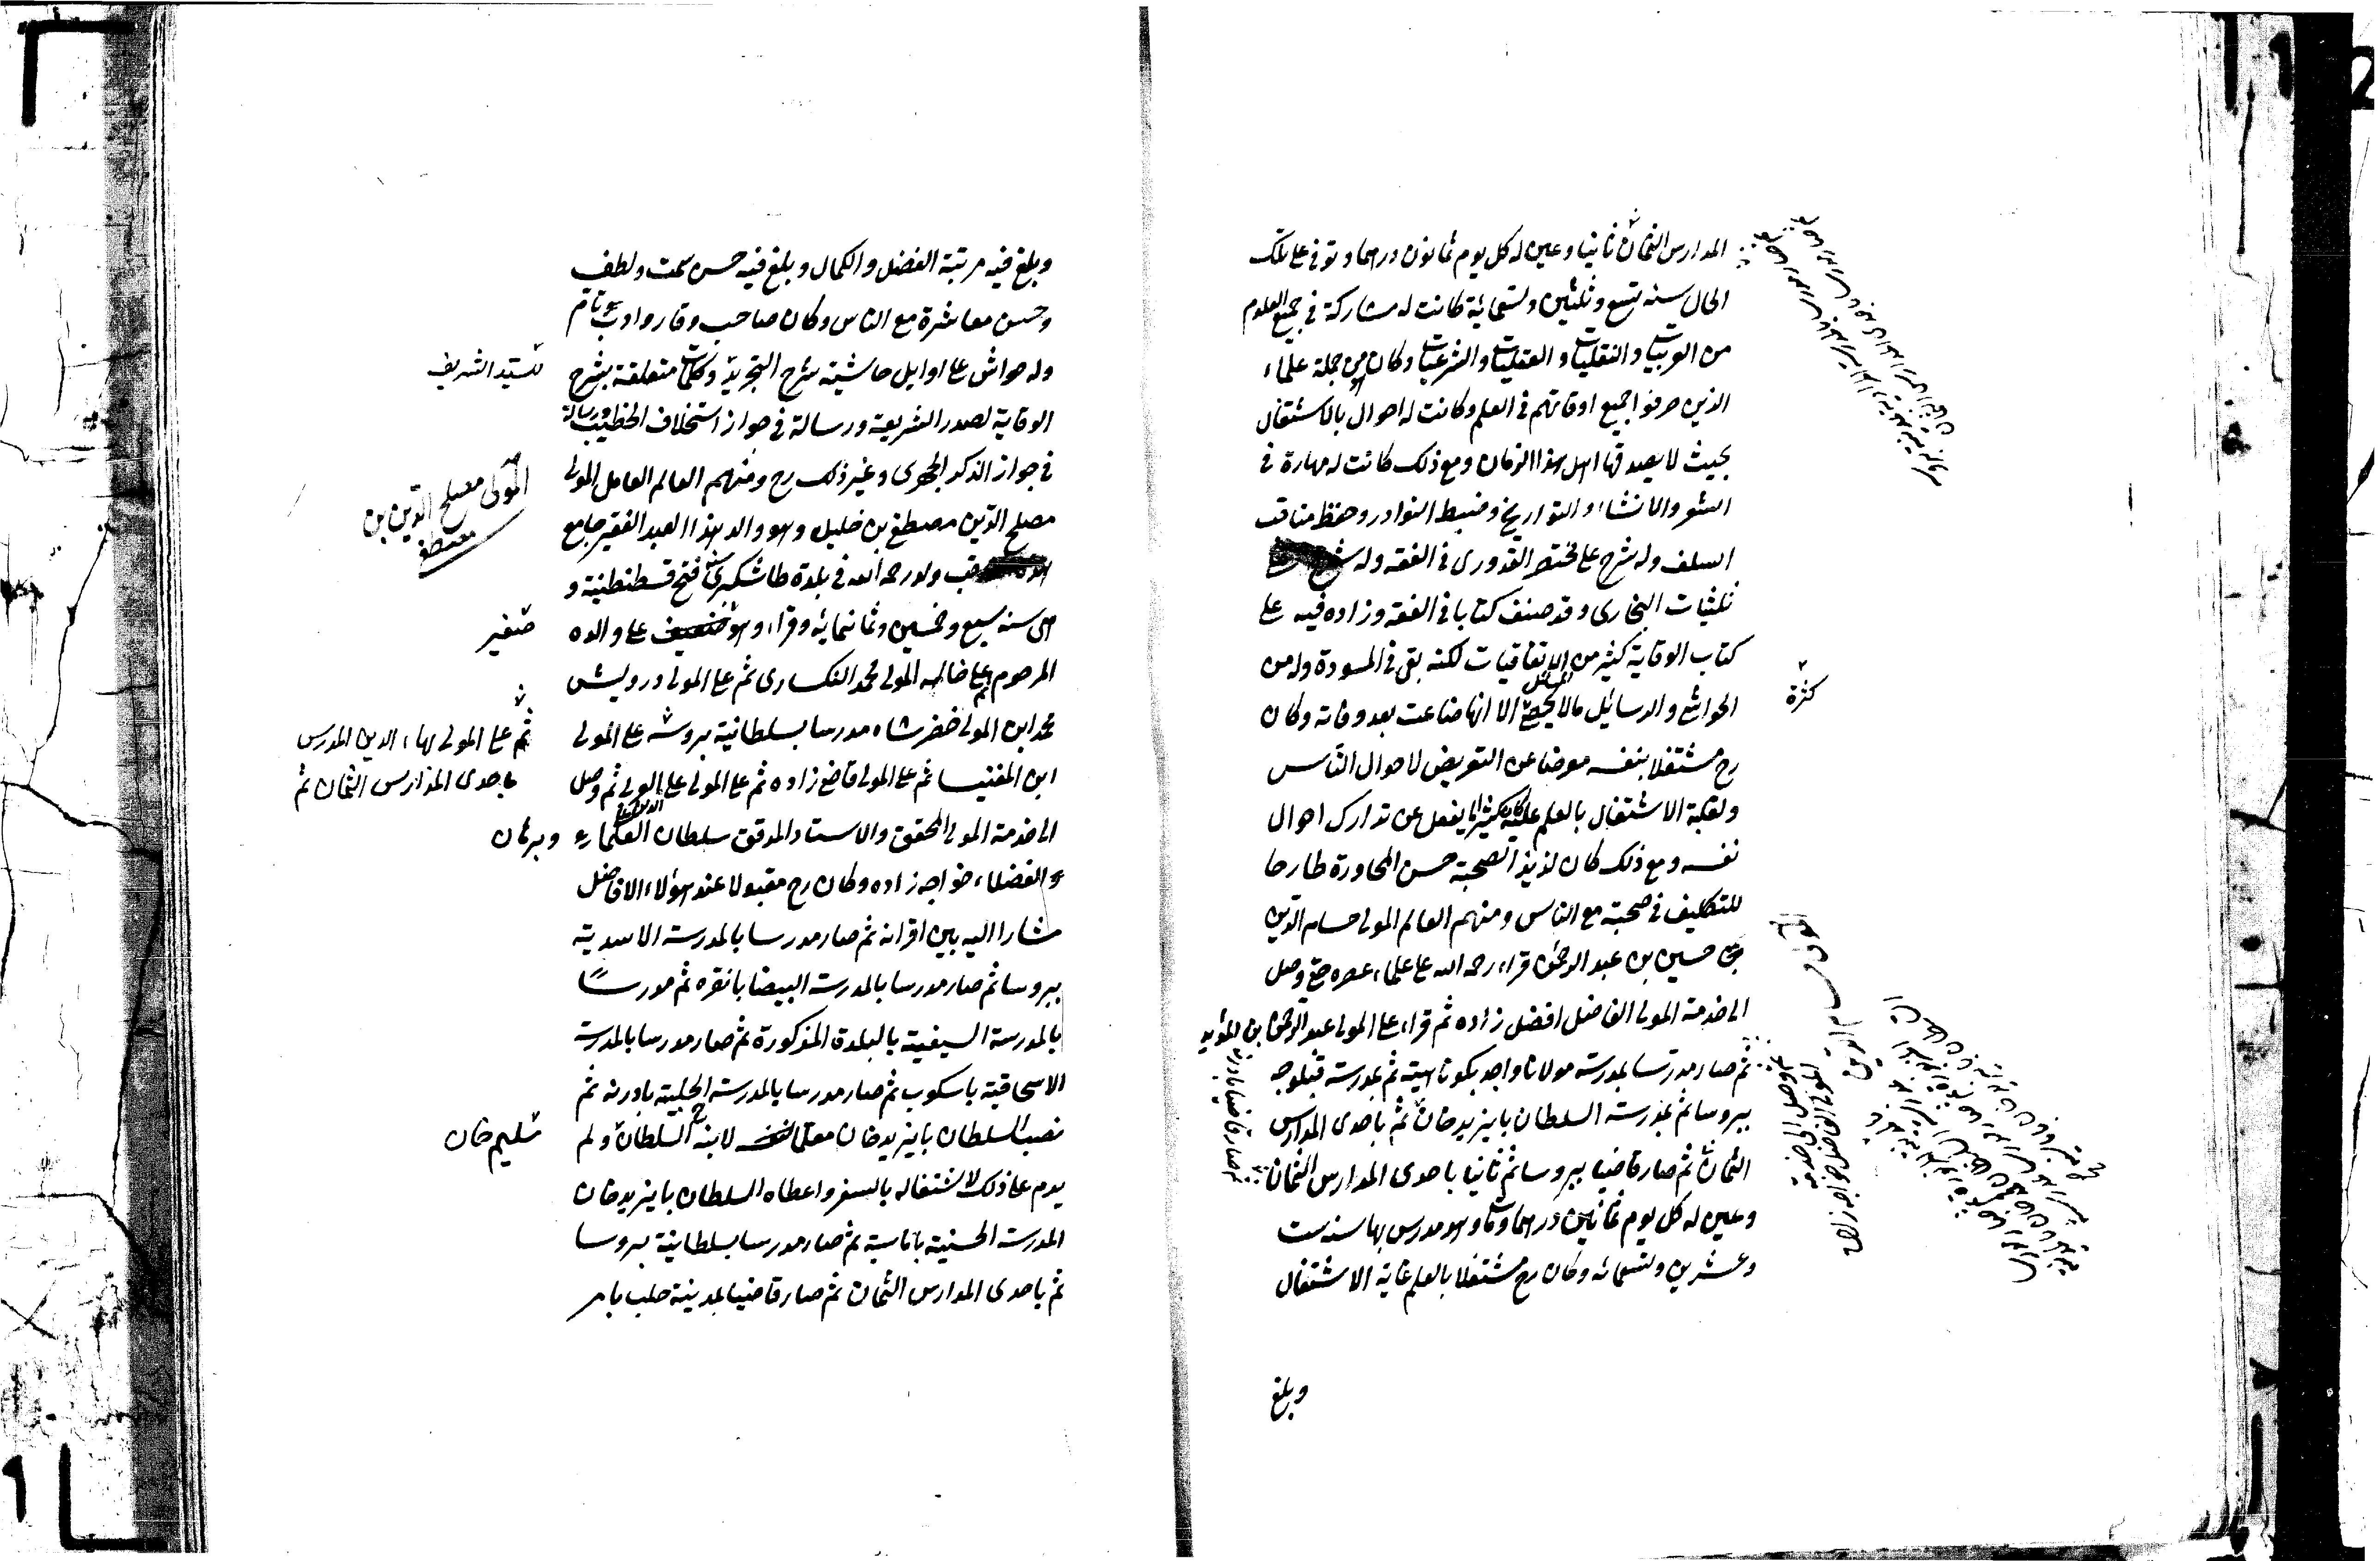 المدارس الثمان ثانيا وعين له كل يوم ثمانون درهما وتوفى على تلك
الحال سنة تسع وثلثين وتسعماية كانت له مشاركة فى جميع العلوم
من العربيات والنقليات والعقليات والشرعيات وكان من جملة علماء
الذين صرفوا جميع اوقاتهم فى العلم وكانت له احوال بالاشتغال
بحيث لا يصدقها اهل هذا الزمان ومع ذلك كانت له مهارة فى
الشعر والانشاء والتواريخ وضبط النوادر وحفظ مناقب
السلف وله شرح على مختصر القدورى فى الفقه وله شرح
ثلثيات البخارى وقد صنف كتابا فى الفقه وزاده فيه على
كتاب الوقاية كثير من الاتفاقيات لكنه بقى فى المسودة وله من
كثرة
الحواشى والرسائل ما لا يحصى الا انها ضاعت بعد وفاته وكان
رح مشتغلا بنفسه معرضا عن التعريض لاحوال الناس
ولغلبة الاشتغال بالعلم عليه يغفل عن تدارك احوال
نفسه ومع ذلك كان لذيذ الصحبة حسن المحاورة طارحا
للتكليف فى صحبته مع الناس ومنهم العالم المولى حسام الدين
حسين بن عبد الرحمن قراء رحمه الله على علماء عصره حتى وصل
الى خدمة المولى الفاضل افضل زاده ثم قراء على المولى عبد الرحمن بن المؤيد
ثم صار مدرسا بمدرسة مولانا واجد بكوتاهية ثم بمدرسة قبلوجه
ببروسا ثم بمدرسة السلطان بايزيد خان ثم باحدى المدارس
الثمان ثم صار قاضيا ببروسا ثم ثانيا باحدى المدارس الثمان
ثم صار قاضيا بادرنه
وعين له كل يوم ثمانين درهما ومات وهو مدرس بها سنة ست
وعشرين وتسعمائه وكان رح مشتغلا بالعلم غاية الاشتغال
وبلغ
المولى حسام الدين
حتى وصل الى خدمة
المولى الفاضل خواجه زاده
وبلغ فيه مرتبة الفضل والكمال وبلغ فيه حسن سمت ولطف
وحسن معاشرة مع الناس وكان صاحب وقار وادب تام
وله حواش على اوايل حاشية شرح التجريد وكلمات متعلقة بشرح
للسيد الشريف
الوقاية لصدر الشريعة ورسالة فى جواز استخلاف الخطيب ورسالة
فى جواز الذكر الجهرى وغير ذلك رح ومنهم العالم العامل المولى
المولى مصلح الدين بن
مصطفى
مصلح الدين مصطفى بن خليل وهو والد هذا العبد الفقير جامع
ولد رحمه الله فى بلدة طاشكبرى سنة فتح قسطنطنية و
هى سنة سبع وخمسين وثمانمايه وقراء وهو ضعيف على والده
صغير
المرحوم ثم على خاله المولى محمد النكسارى ثم على المولى درويش
محمد ابن المولى خضر شاه مدرسا بسلطانية بروسه على المولى
ثم على المولى بهاء الدين المدرس
باحدى المدارس الثمان ثم
ابن المغنيسا ثم على المولى قاضى زاده ثم على المولى على العربى ثم وصل
الى خدمة المولى المحقق والاستاد المدقق سلطان العلماء وبرهان
والفضلاء خواجه زاده وكان رح مقبولا عند هؤلاء الافاضل
مشارا اليه بين اقرانه ثم صار مدرسا بالمدرسة الاسدية
ببروسا ثم صار مدرسا بالمدرسة البيضا بانقره ثم مدرسًا
بالمدرسة السيفية بالبلدة المذكورة ثم صار مدرسا بالمدرسة
الاسحاقية باسكوب ثم صار مدرسا بالمدرسة الحلبية بادرنه ثم
نصب السلطان بايزيد خان معلما لابنه السلطان ولم
سليم خان
يدم على ذلك لاشتغاله بالسفر واعطاه السلطان بايزيد خان
المدرسة الحسنية باماسية ثم صار مدرسا بسلطانية بروسا
ثم باحدى المدارس الثمان ثم صار قاضيا بمدينة حلب بامر